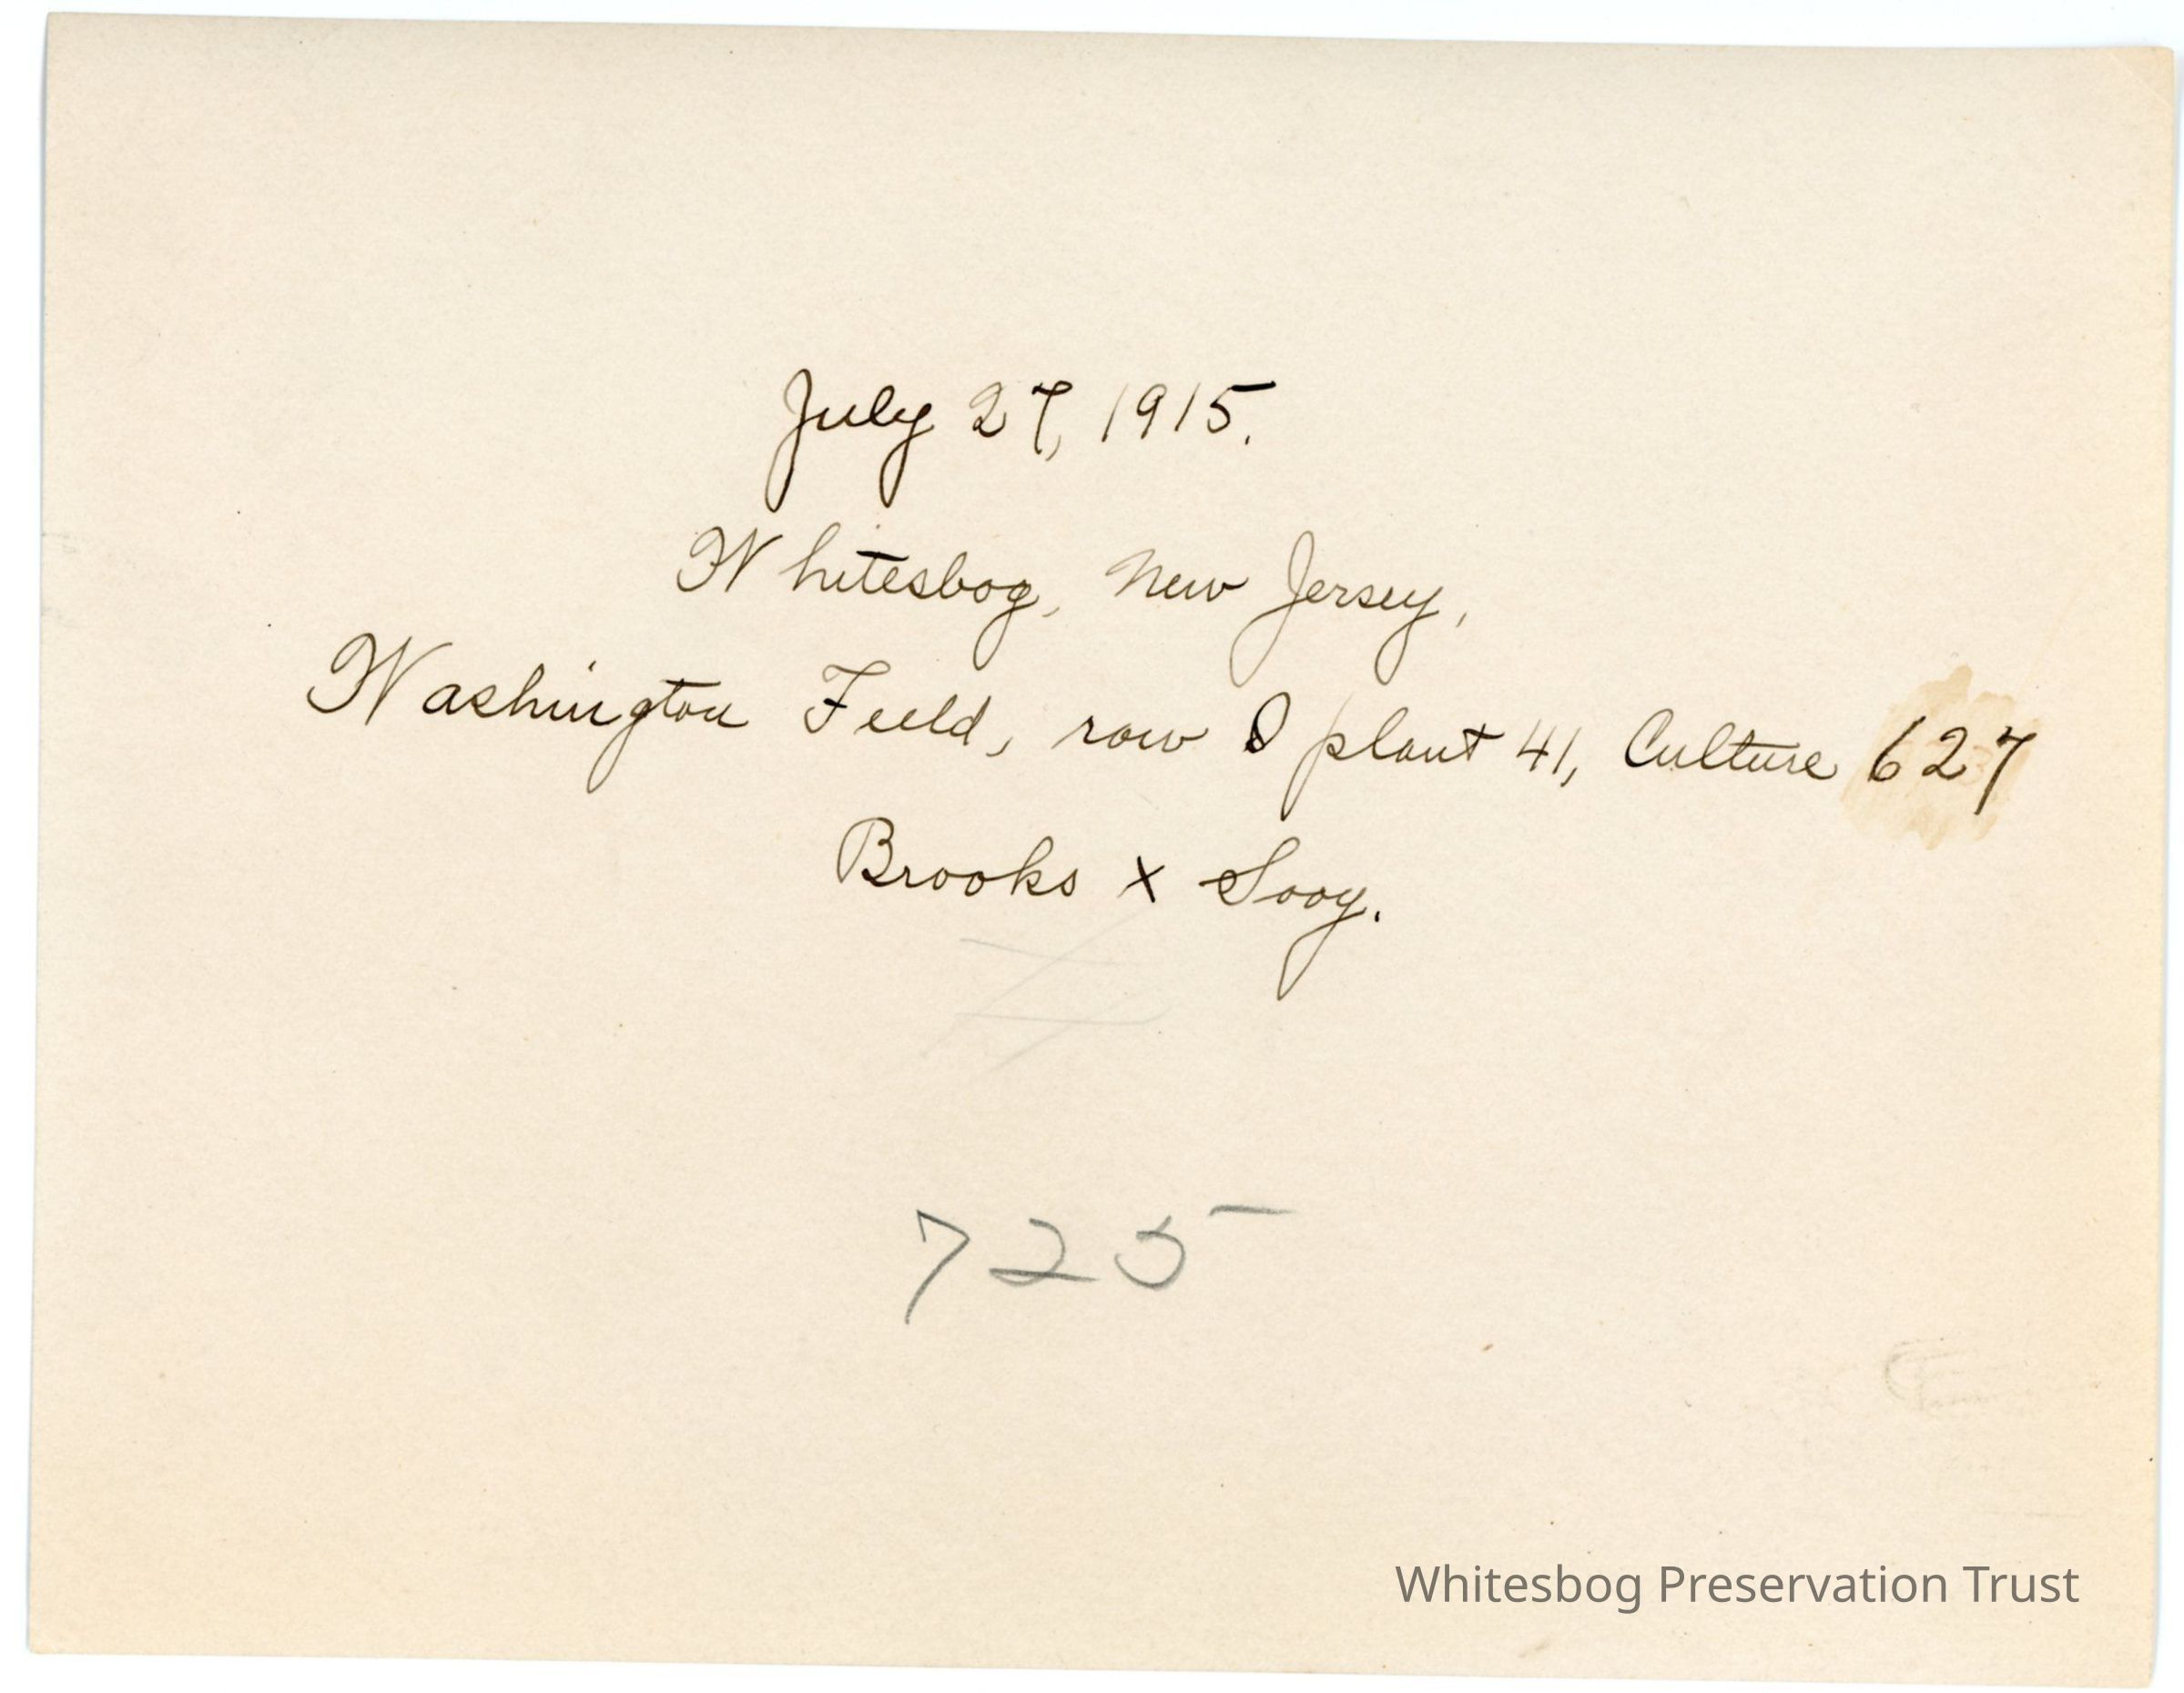 July 27, 1915.
Whitesbog, New Jersey,
Washington Field, row plant 41, Culture 627
Brooks x Sooy.
725
Whitesbog Preservation Trust